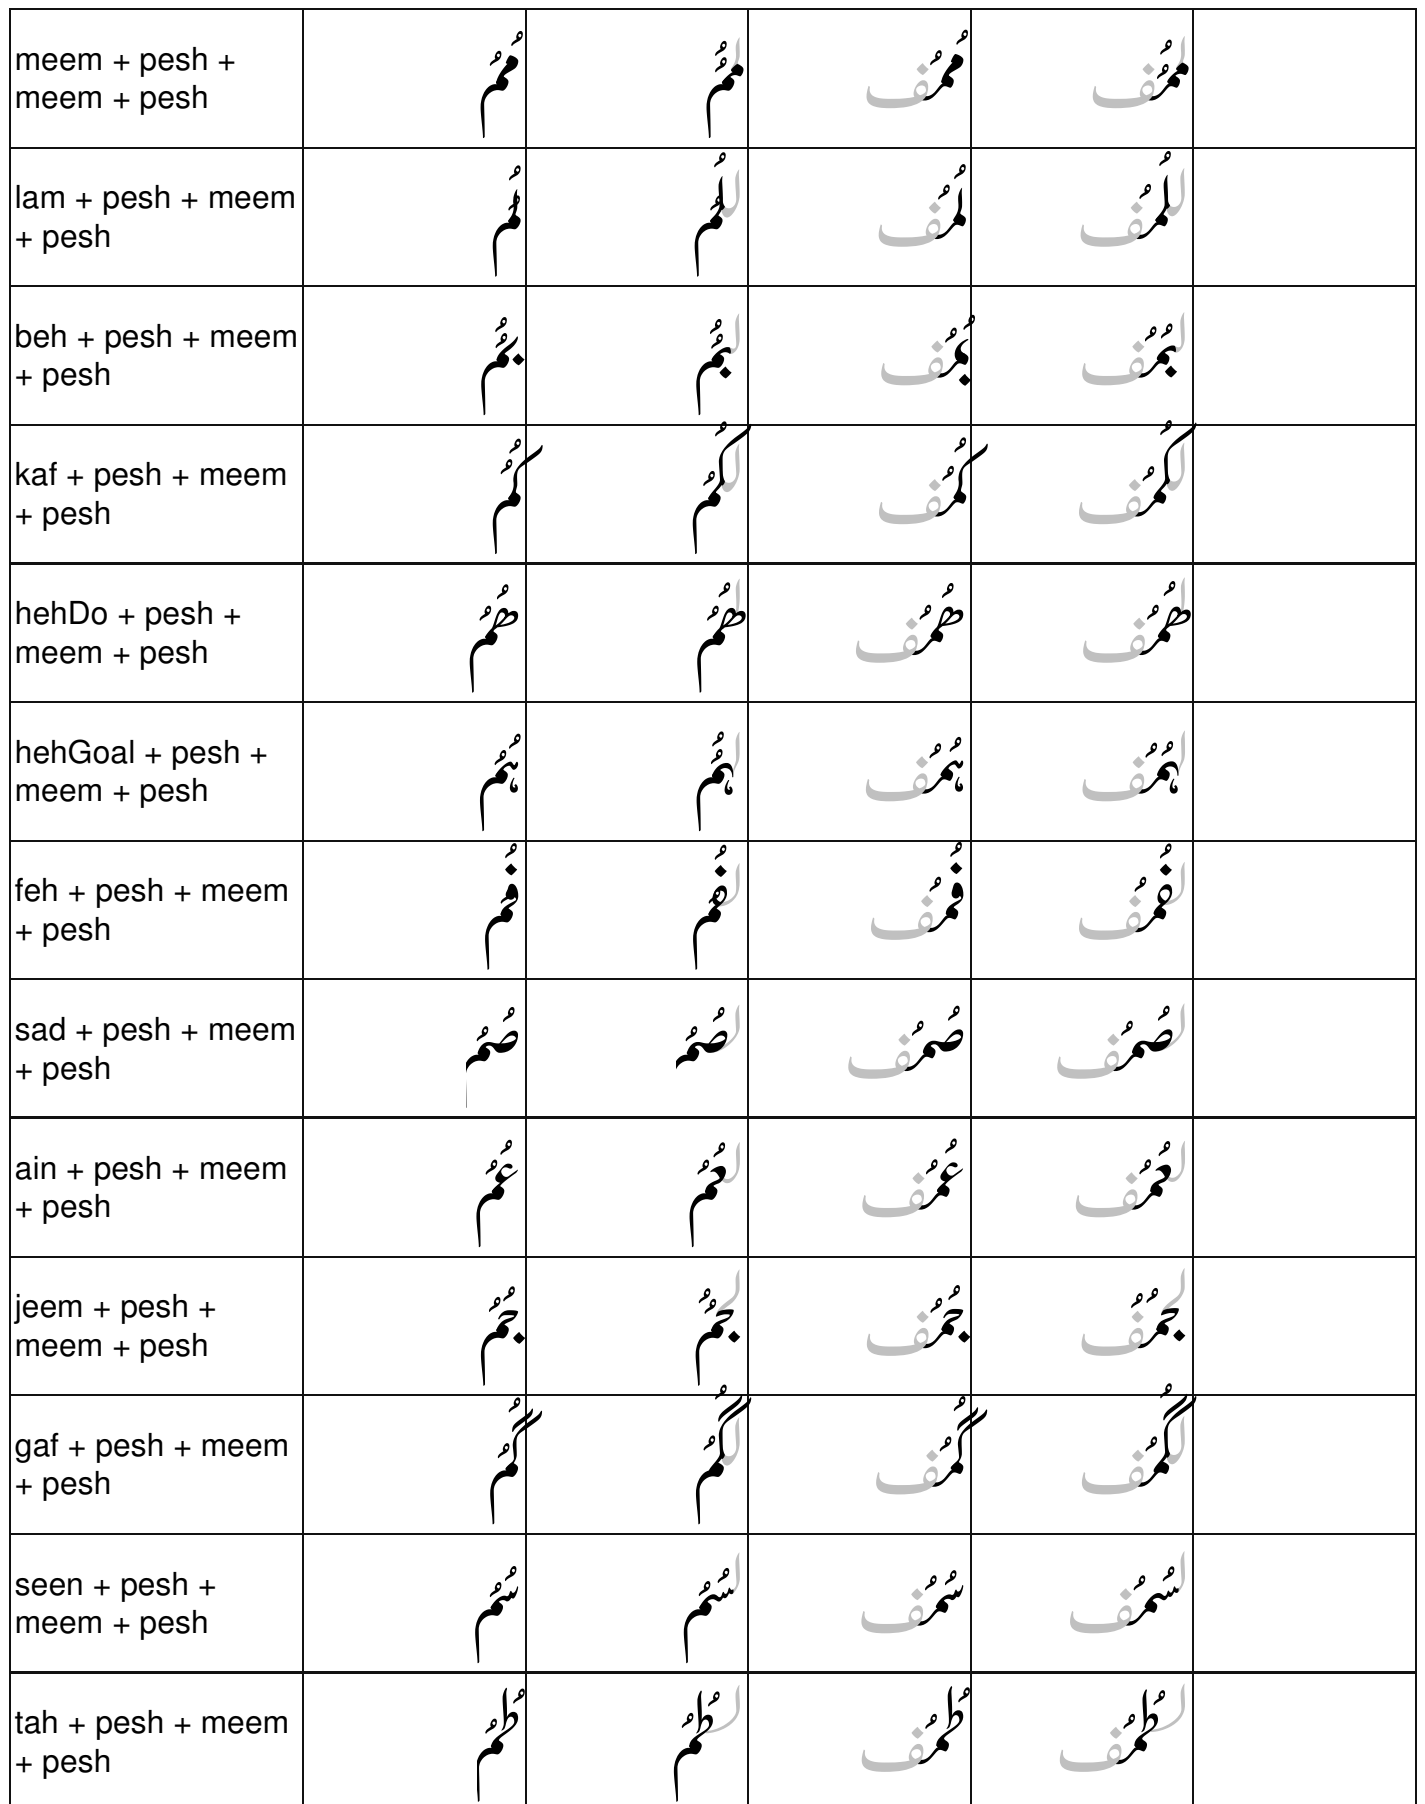 meem + pesh +
meem + pesh
مُمُ لمُمُ مُمُف لمُمُف
lam + pesh + meem
+ pesh
لُمُ للُمُ لُمُف للُمُف
beh + pesh + meem
+ pesh
بُمُ لبُمُ بُمُف لبُمُف
kaf + pesh + meem
+ pesh
کُمُ لکُمُ کُمُف لکُمُف
hehDo + pesh +
meem + pesh
ھُمُ لھُمُ ھُمُف لھُمُف
hehGoal + pesh +
meem + pesh
ہُمُ لہُمُ ہُمُف لہُمُف
feh + pesh + meem
+ pesh
فُمُ لفُمُ فُمُف لفُمُف
sad + pesh + meem
+ pesh
صُمُ لصُمُ صُمُف لصُمُف
ain + pesh + meem
+ pesh
عُمُ لعُمُ عُمُف لعُمُف
jeem + pesh +
meem + pesh
جُمُ لجُمُ جُمُف لجُمُف
gaf + pesh + meem
+ pesh
گُمُ لگُمُ گُمُف لگُمُف
seen + pesh +
meem + pesh
سُمُ لسُمُ سُمُف لسُمُف
tah + pesh + meem
+ pesh
طُمُ لطُمُ طُمُف لطُمُف